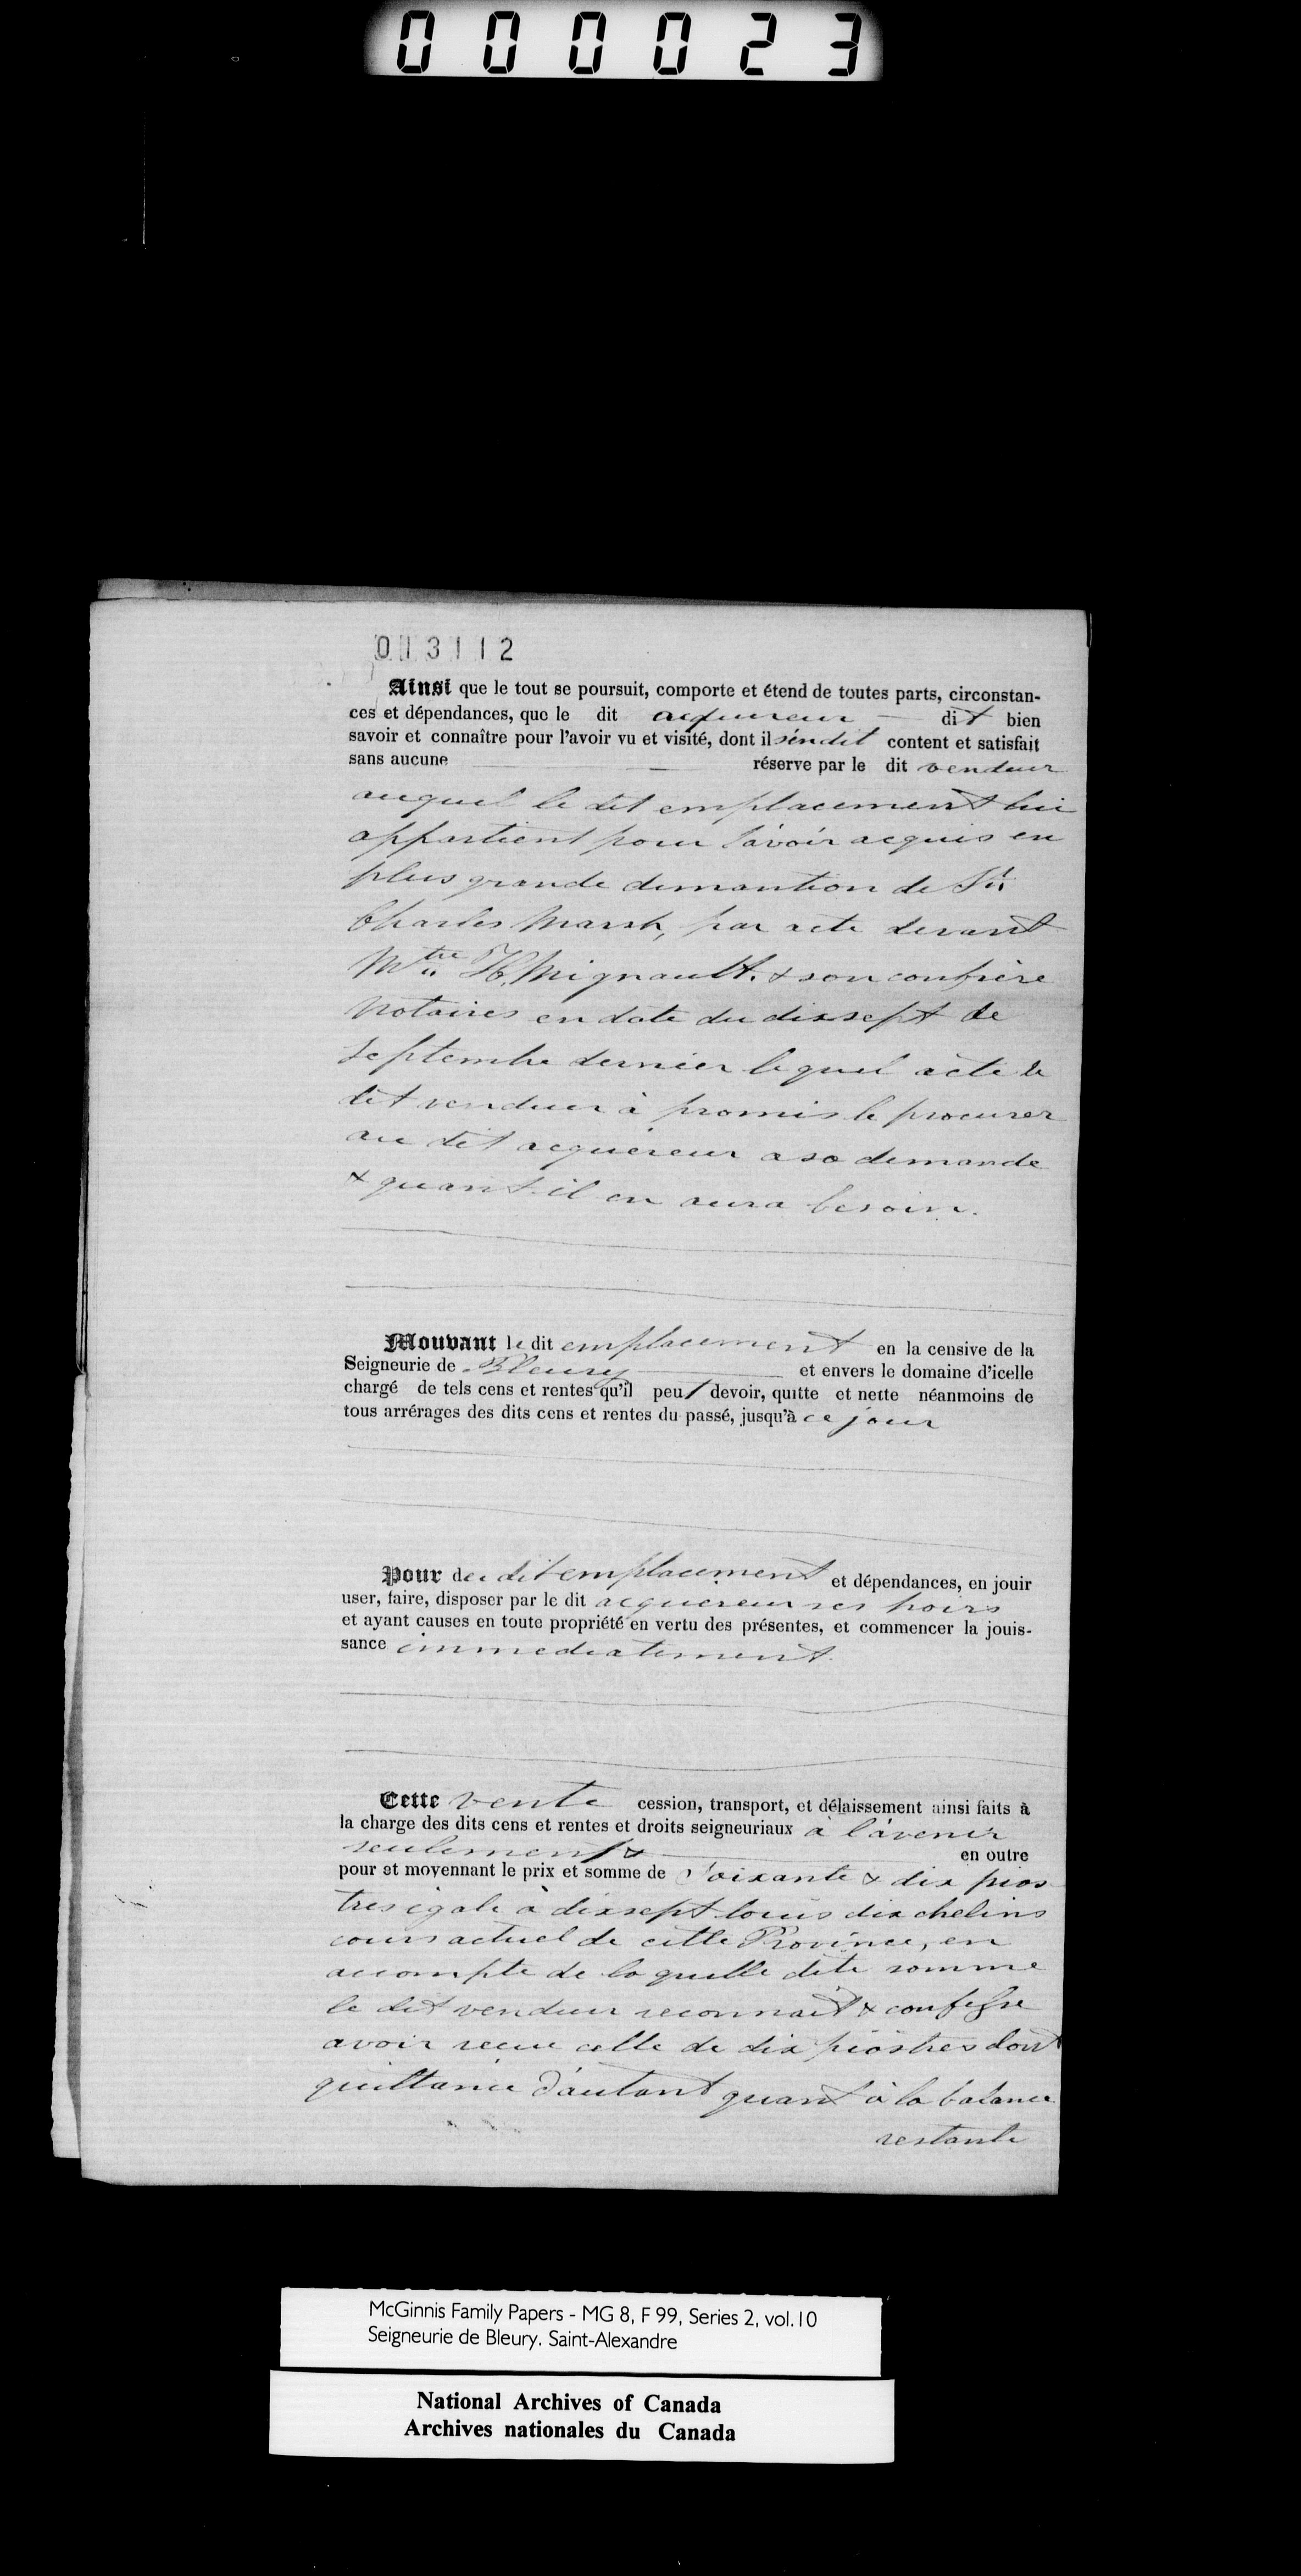 000023
013112
Ainsi que le tout se poursuit, comporte et étend de toutes parts, circonstan-
ces et dépendances, que le dit acquereur — dit bien
savoir et connaître pour l'avoir vu et visité, dont il s'en dit content et satisfait
sans aucune — réserve par le dit vendeur
auquel le dit emplacement lui
appartient pour l'avoir acquis en
plus grande demantion de Sr.
Charles Marsh, par acte devant
Mtre H. Mignault. & son confrère
Notaires en date du dixsept de
Septembre dernier lequel acte le
dit vendeur à promis le procurer
au dit acquéreur a sa demande
& quant il en aura besoin.
Mouvant le dit emplacement en la censive de la
Seigneurie de Bleury — et envers le domaine d'icelle
chargé de tels cens et rentes qu'il peut devoir, quitte et nette néanmoins de
tous arrérages des dits cens et rentes du passé, jusqu'à ce jour
Pour du dit emplacement et dépendances, en jouir
user, faire, disposer par le dit acquereur ses hoirs
et ayant causes en toute propriété en vertu des présentes, et commencer la jouis-
sance immediatement.
Cette vente cession, transport, et délaissement ainsi faits à
la charge des dits cens et rentes et droits seigneuriaux à l'avenir
seulement & — en outre
pour et moyennant le prix et somme de Soixante & dix pias
tres égale à dixsept louis dix chelins
cours actuel de cette Province, en
accompte de la quelle dite somme
le dit vendeur reconnait & confesse
avoir recue celle de dix piastres dont
quittance d'autant quant à la balance
restante
McGinnis Family Papers - MG 8, F 99, Series 2, vol.10
Seigneurie de Bleury. Saint-Alexandre
National Archives of Canada
Archives nationales du Canada